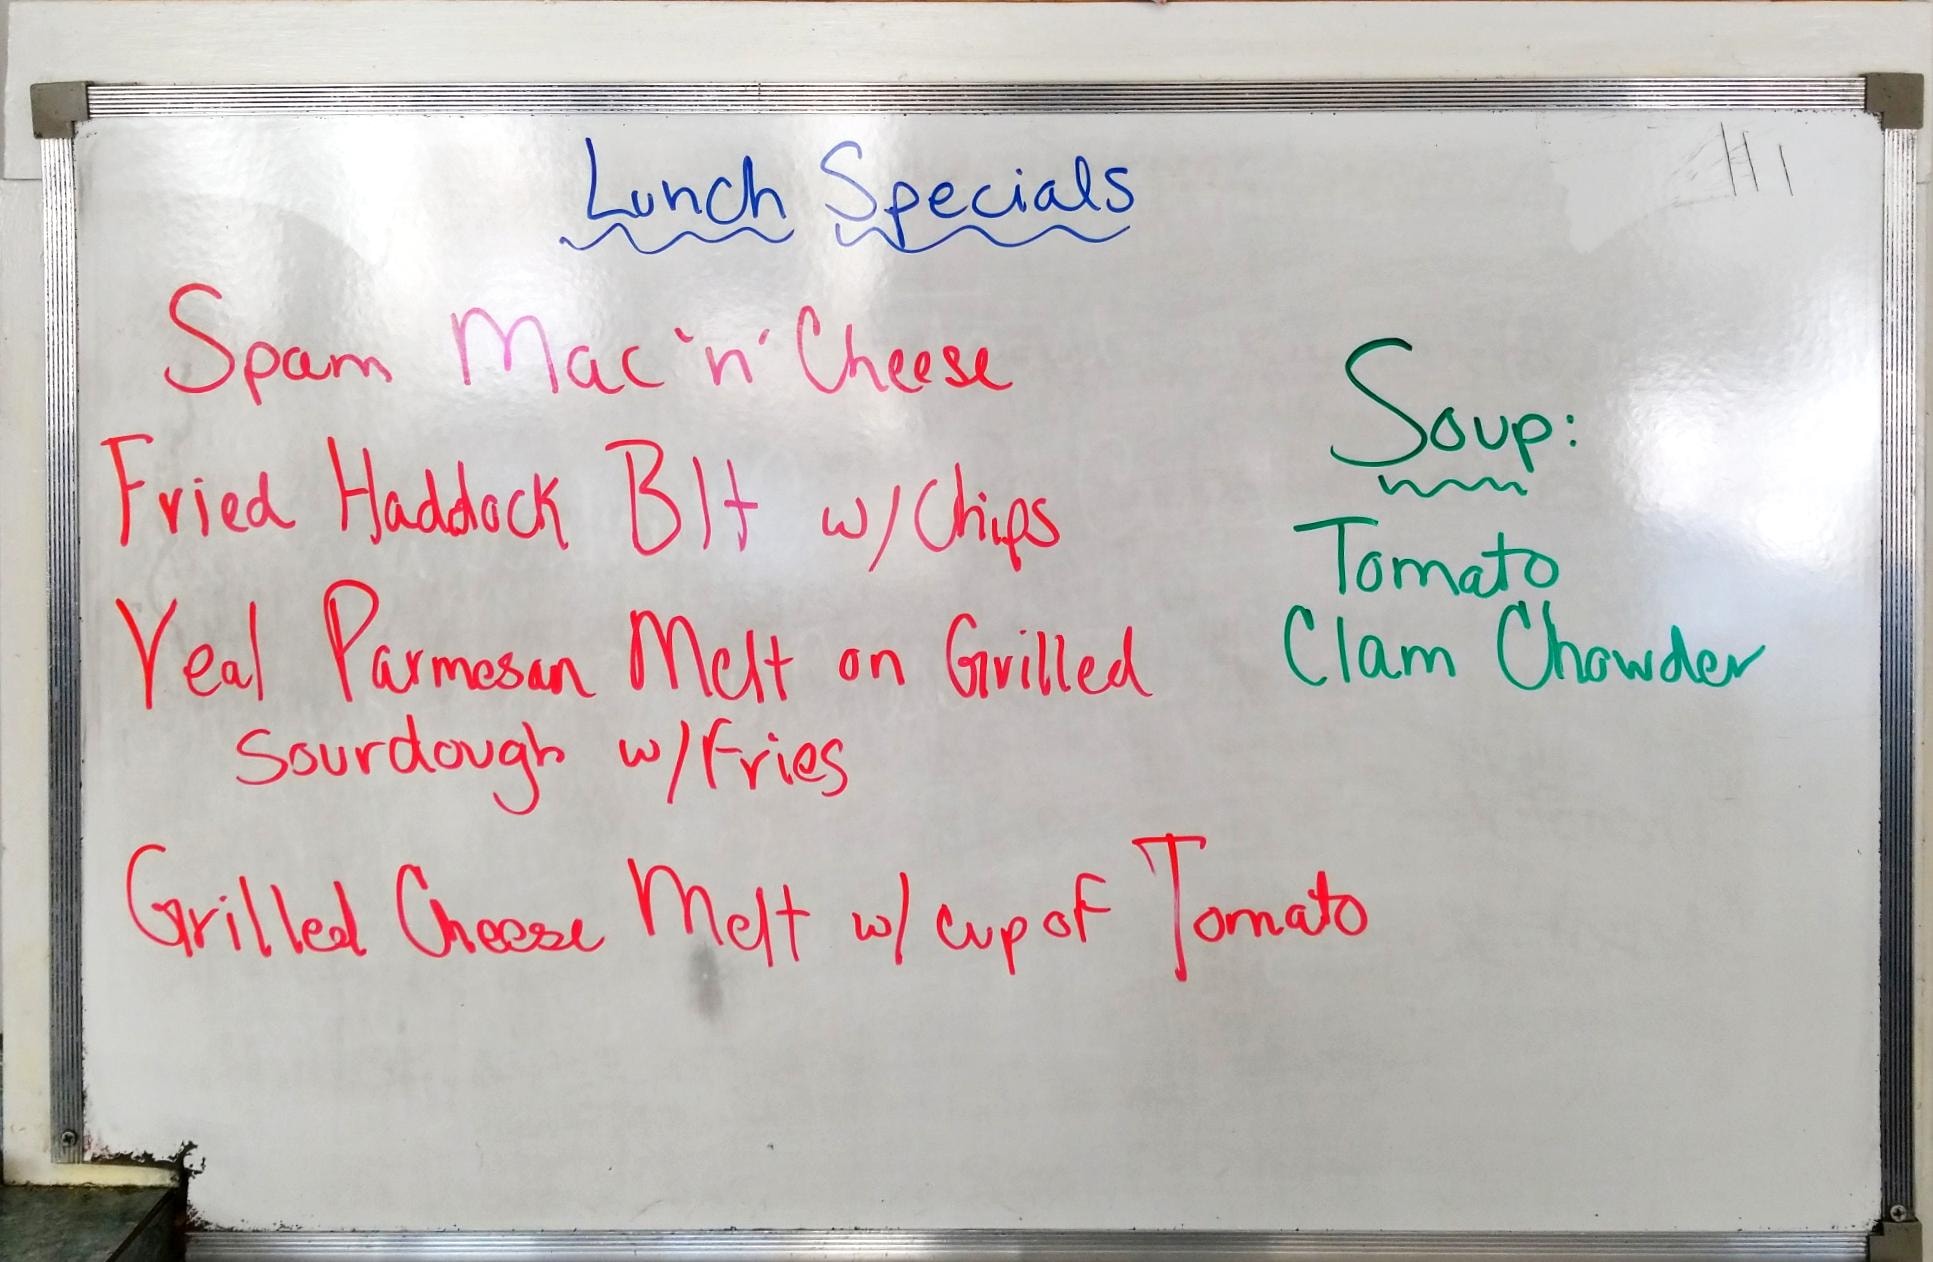 Lunch Specials
Spam Mac 'n' Cheese
Fried Haddock Blt w/Chips
Veal Parmesan Melt on Grilled
Sourdough w/Fries
Grilled Cheese Melt w/ cup of Tomato
Soup:
Tomato
Clam Chowder